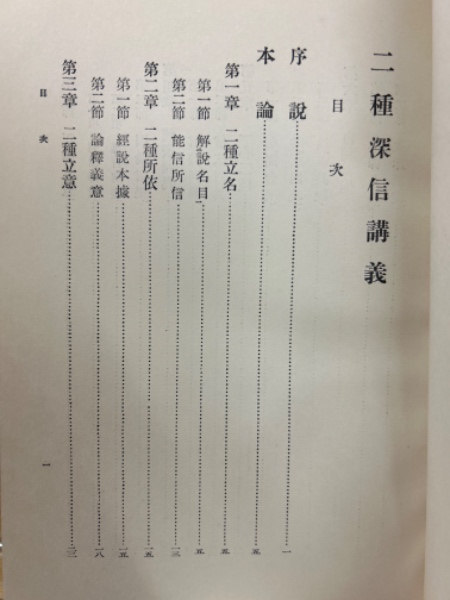 二種深信講義
目次
序說……一
本論……五
第一章 二種立名……五
第一節 解說名目……五
第二節 能信所信……一三
第二章 二種所依……一五
第一節 經說本據……一五
第二節 論釋義意……一八
第三章 二種立意……二三
目次
一